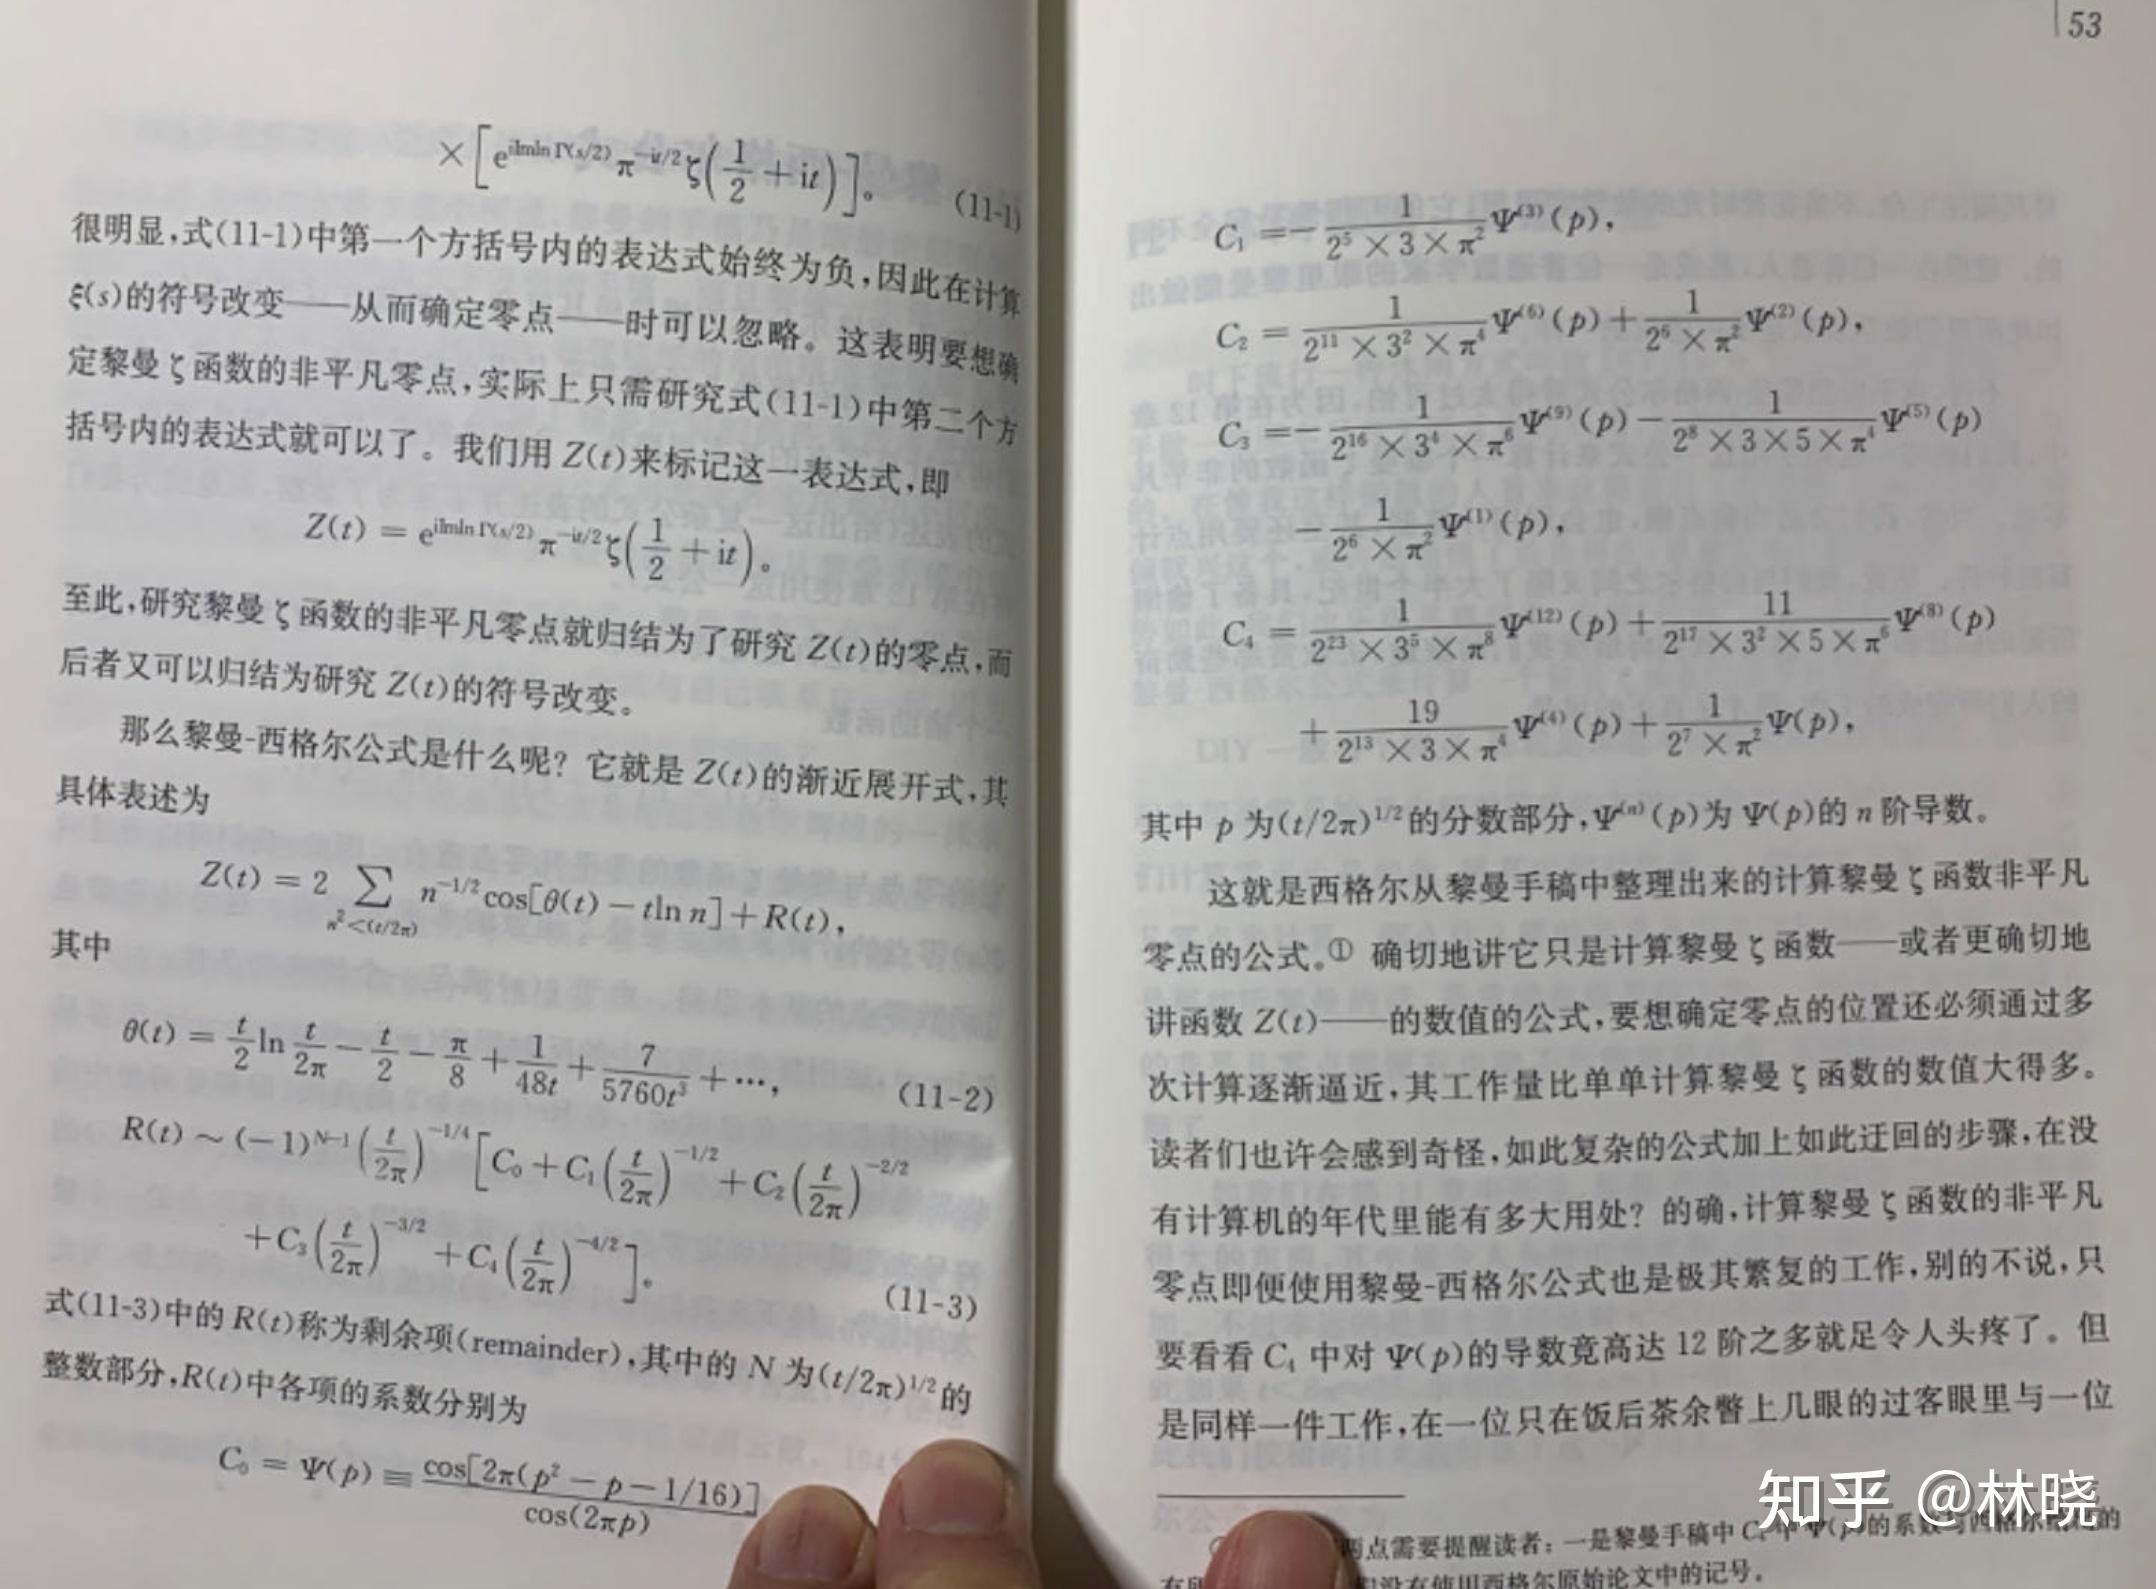 × [e^{iImln Γ(s/2)} π^{-it/2} ζ(1/2 + it)]。 (11-1)
很明显,式(11-1)中第一个方括号内的表达式始终为负,因此在计算
ξ(s)的符号改变——从而确定零点——时可以忽略。这表明要想确
定黎曼 ζ 函数的非平凡零点,实际上只需研究式(11-1)中第二个方
括号内的表达式就可以了。我们用 Z(t)来标记这一表达式,即
Z(t) = e^{iImln Γ(s/2)} π^{-it/2} ζ(1/2 + it)。
至此,研究黎曼 ζ 函数的非平凡零点就归结为了研究 Z(t)的零点,而
后者又可以归结为研究 Z(t)的符号改变。
那么黎曼-西格尔公式是什么呢?它就是 Z(t)的渐近展开式,其
具体表述为
Z(t) = 2 ∑_{n²<(t/2π)} n^{-1/2} cos[θ(t) − tln n] + R(t),
其中
θ(t) = t/2 ln t/2π − t/2 − π/8 + 1/48t + 7/5760t³ + ⋯, (11-2)
R(t) ~ (−1)^{N−1} (t/2π)^{-1/4} [C₀ + C₁(t/2π)^{-1/2} + C₂(t/2π)^{-2/2}
+ C₃(t/2π)^{-3/2} + C₄(t/2π)^{-4/2}]。 (11-3)
式(11-3)中的 R(t)称为剩余项(remainder),其中的 N 为(t/2π)^{1/2}的
整数部分,R(t)中各项的系数分别为
C₀ = Ψ(p) ≡ cos[2π(p² − p − 1/16)] / cos(2πp)
53
C₁ = − 1/(2⁵ × 3 × π²) Ψ⁽³⁾(p),
C₂ = 1/(2¹¹ × 3² × π⁴) Ψ⁽⁶⁾(p) + 1/(2⁶ × π²) Ψ⁽²⁾(p),
C₃ = − 1/(2¹⁶ × 3⁴ × π⁶) Ψ⁽⁹⁾(p) − 1/(2⁸ × 3 × 5 × π⁴) Ψ⁽⁵⁾(p)
− 1/(2⁶ × π²) Ψ⁽¹⁾(p),
C₄ = 1/(2²³ × 3⁵ × π⁸) Ψ⁽¹²⁾(p) + 11/(2¹⁷ × 3² × 5 × π⁶) Ψ⁽⁸⁾(p)
+ 19/(2¹³ × 3 × π⁴) Ψ⁽⁴⁾(p) + 1/(2⁷ × π²) Ψ(p),
其中 p 为(t/2π)^{1/2}的分数部分,Ψ⁽ⁿ⁾(p)为 Ψ(p)的 n 阶导数。
这就是西格尔从黎曼手稿中整理出来的计算黎曼 ζ 函数非平凡
零点的公式。① 确切地讲它只是计算黎曼 ζ 函数——或者更确切地
讲函数 Z(t)——的数值的公式,要想确定零点的位置还必须通过多
次计算逐渐逼近,其工作量比单单计算黎曼 ζ 函数的数值大得多。
读者们也许会感到奇怪,如此复杂的公式加上如此迂回的步骤,在没
有计算机的年代里能有多大用处?的确,计算黎曼 ζ 函数的非平凡
零点即便使用黎曼-西格尔公式也是极其繁复的工作,别的不说,只
要看看 C₄ 中对 Ψ(p)的导数竟高达 12 阶之多就足令人头疼了。但
是同样一件工作,在一位只在饭后茶余瞥上几眼的过客眼里与一位
两点需要提醒读者:一是黎曼手稿中 C₄ 中 Ψ(p)的系数与西格尔的
没有使用西格尔原始论文中的记号。
知乎 @林晓